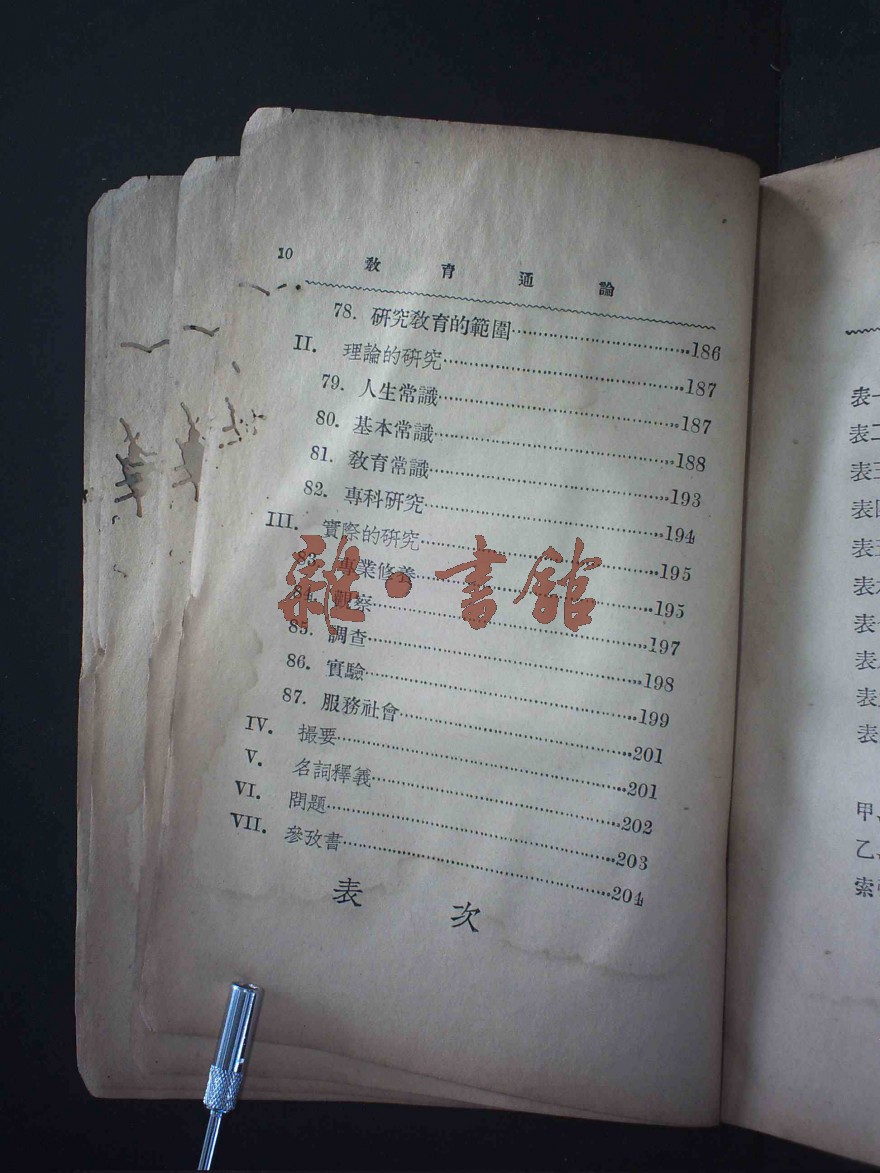 10 敎育通論
78. 研究敎育的範圍 186
II. 理論的研究 187
79. 人生常識 187
80. 基本常識 188
81. 敎育常識 193
82. 專科研究 194
III. 實際的研究 195
83. 專業修養 195
84. 觀察 197
85. 調查 198
86. 實驗 199
87. 服務社會 201
IV. 撮要 201
V. 名詞釋義 202
VI. 問題 203
VII. 參攷書 204
表次
雜·書館
表一
表二
表
表
表
表
表
表
表
表
甲、
乙、
索